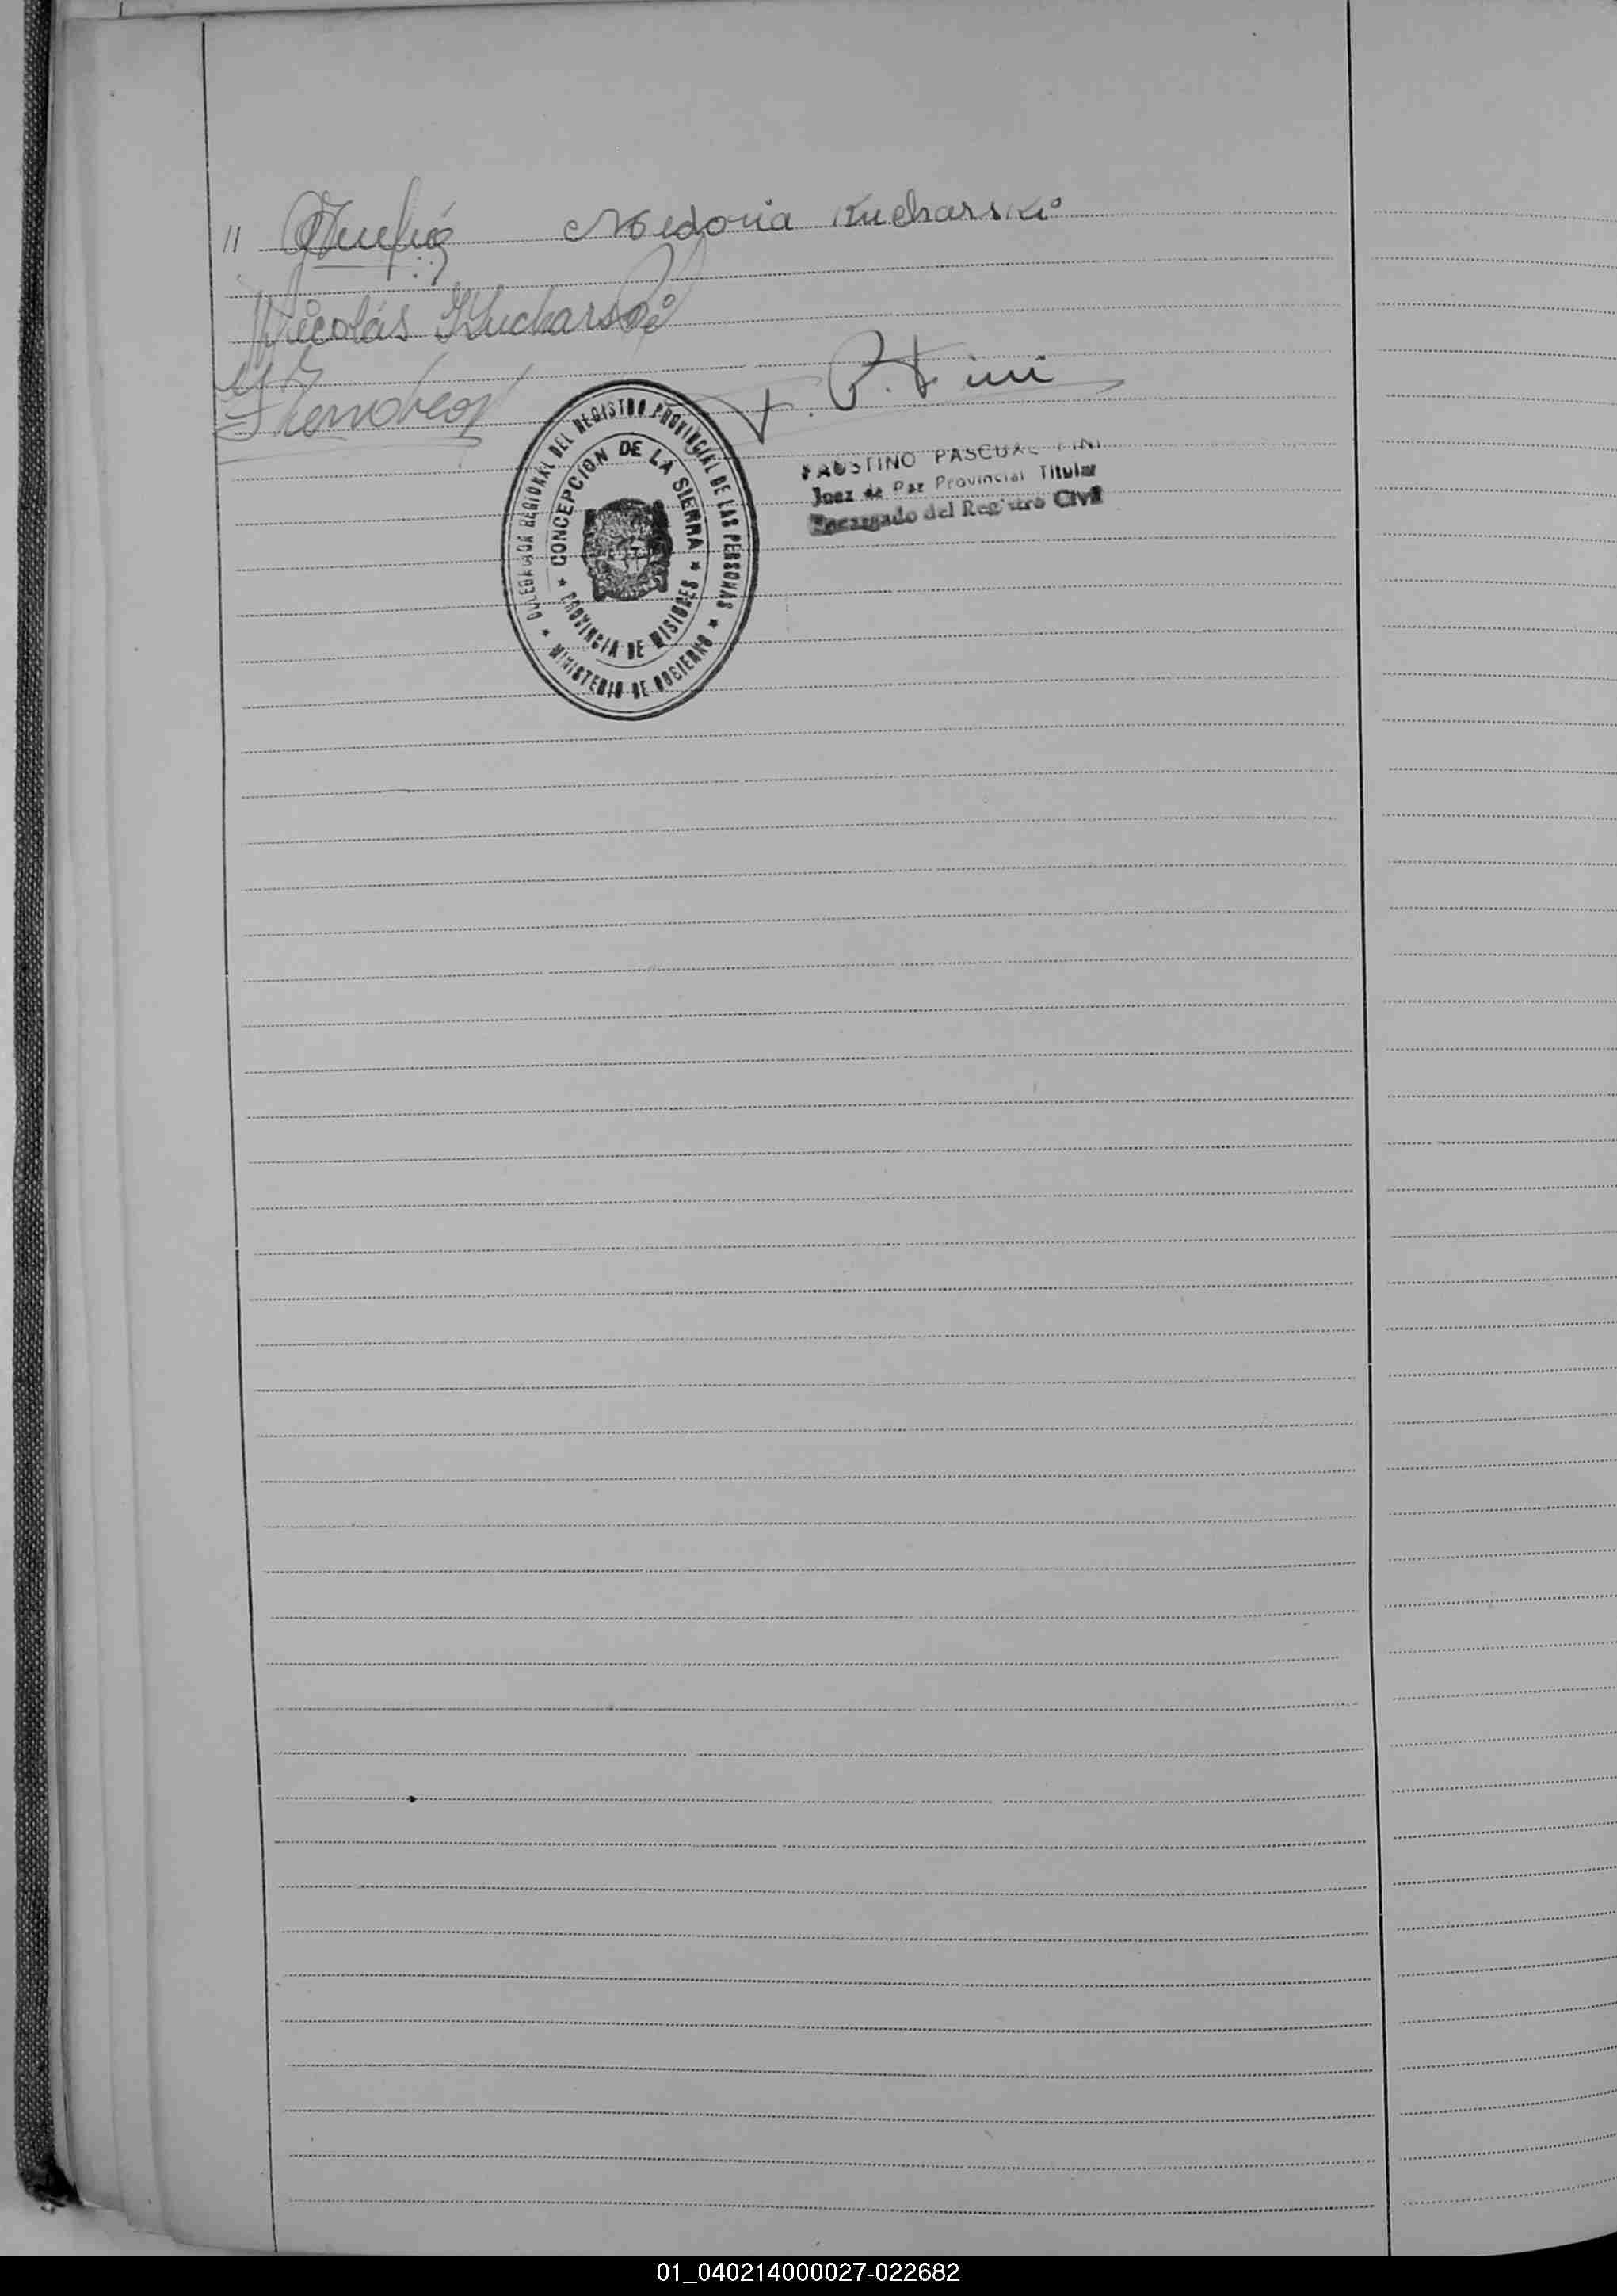 //
Nicolás Kucharski
F. P. Fini
FAUSTINO PASCUAL FINI
Juez de Paz Provincial Titular
Encargado del Registro Civil
DELEGACION REGIONAL DEL REGISTRO PROVINCIAL DE LAS PERSONAS
★ CONCEPCION DE LA SIERRA ★
PROVINCIA DE MISIONES
★ MINISTERIO DE GOBIERNO ★
01_040214000027-022682